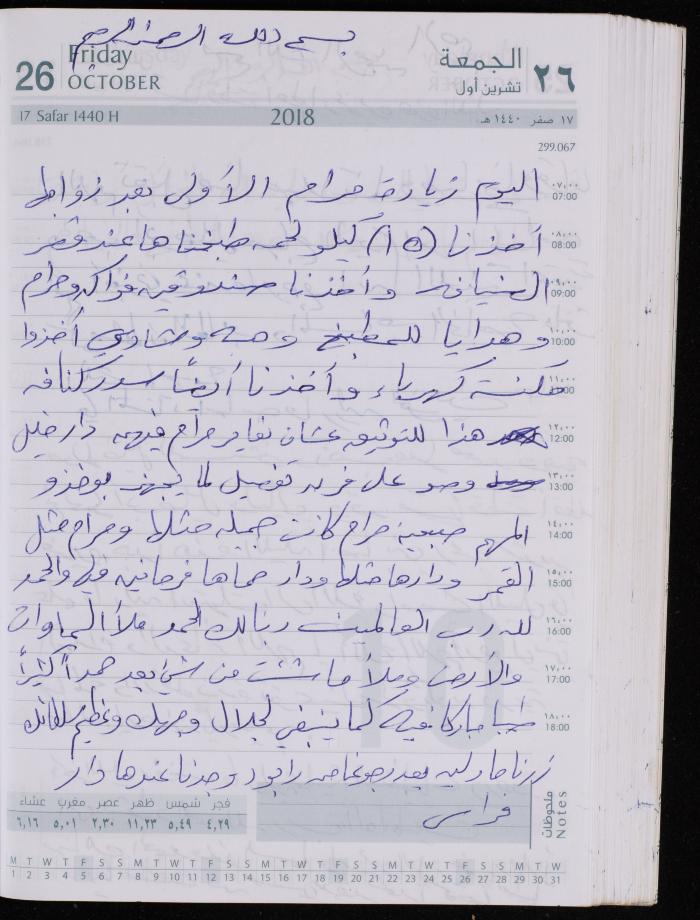 بسم الله الرحمن الرحيم
26 Friday OCTOBER
الجمعة ٢٦ تشرين أول
17 Safar 1440 H 2018 ١٧ صفر ١٤٤٠ هـ
299.067
اليوم زيارة مرام الأولى بعد زواجها
٠٧:٠٠ 07:00
أخذنا (١٥) كيلو لحمه طبخناها عند قصر
٠٨:٠٠ 08:00
الضيافه وأخذنا صندوقين فواكه وحرام
٠٩:٠٠ 09:00
وهدايا للمطبخ وشادي أخذوا
١٠:٠٠ 10:00
مكنسة كهرباء وأخذنا أيضاً سدر كنافه
١١:٠٠ 11:00
هذا للتوثيق عشان مرام دار
١٢:٠٠ 12:00
وهو على تفصيل لما يجهز
١٣:٠٠ 13:00
المهم صبحية مرام كانت جميله مثلها ومرام مثل
١٤:٠٠ 14:00
القمر ودارها مثلها ودار حماها فرحانين والحمد
١٥:٠٠ 15:00
لله رب العالمين ربنا لك الحمد ملأ السماوات
١٦:٠٠ 16:00
والأرض وملأ ما شئت من شيء بعد حمداً كثيراً
١٧:٠٠ 17:00
طيبا مباركا فيه كما ينبغي لجلال وجهك وعظيم سلطانك
١٨:٠٠ 18:00
زرنا بعد وجدنا عندها دار
فراس
ملحوظات Notes
فجر شمس ظهر عصر مغرب عشاء
٤,٢٩ ٥,٤٩ ١١,٢٣ ٢,٣٠ ٥,٠١ ٦,١٦
M T W T F S S M T W T F S S M T W T F S S M T W T F S S M T W
1 2 3 4 5 6 7 8 9 10 11 12 13 14 15 16 17 18 19 20 21 22 23 24 25 26 27 28 29 30 31